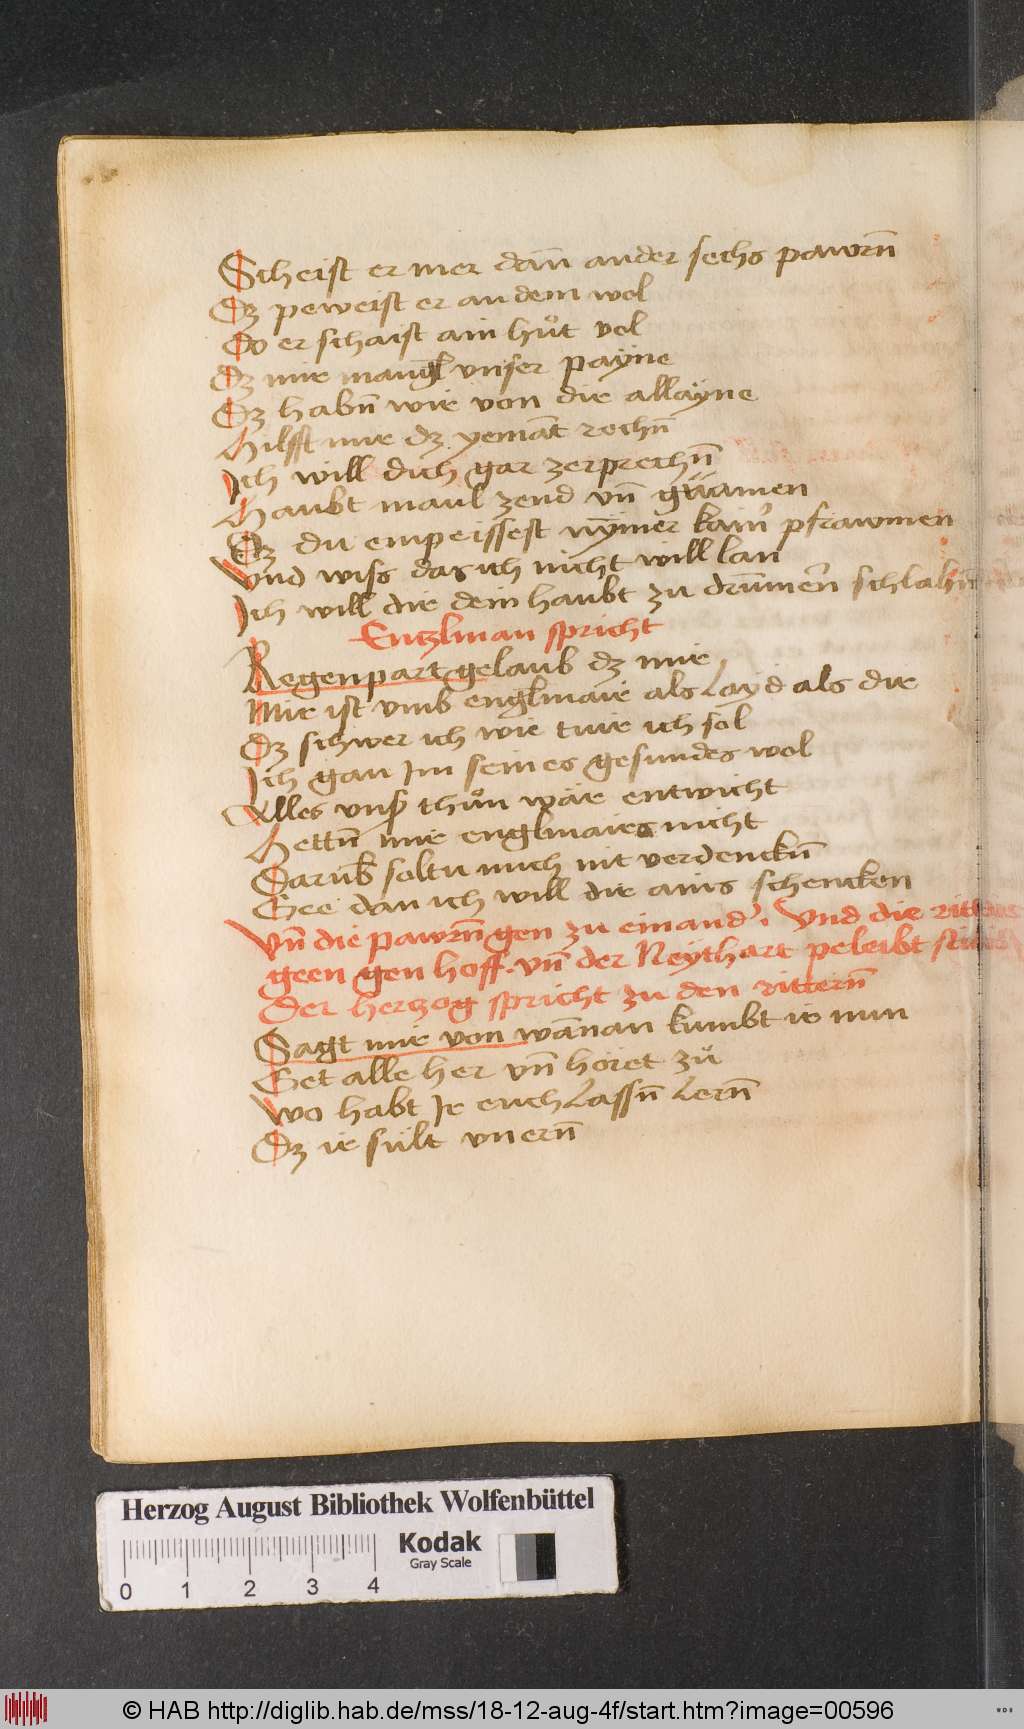 Scheist er mer dan̄ ander sechs pawrn̄
Dz peweist er an dem wol
Do er schaist ain hůt vol
Dz mir mangl vnser payne
Dz habn̄ wir von dir allayne
Hilfft mir dz yemāt rechn̄
Ich will dich gar zerprechn̄
Haubt maul zend vn̄ guamen
Dz du enpeissest nȳmer kain pfrawmen
Vnd wiss das ich nicht will lan
Ich will dir dein haubt zu drūmern̄ schlahn̄
Entzlman spricht
Regenpart gelaub dz mir
Mir ist vmb englmair als Layd als dir
Dz schwer ich wie twr ich sol
Ich gan Im seines gesundes wol
Alles vnser thůn wär entwicht
Hettn̄ mir englmaires nicht
Darūb soltu mich nit verdenckn̄
See dan ich will dir ains schencken
Vn̄ die pawrn̄ gen zu einander. Vnd die
geen gen hoff. vn̄ der Neythart peleibt
Der hertzog spricht zu den rittern̄
Sagt mir von wānan kumbt ir nun
Get alle her vn̄ höret zů
Wo habt Ir euch Lassn̄ Lern̄
Dz ir sült vnern̄
Herzog August Bibliothek Wolfenbüttel
Kodak
Gray Scale
0 1 2 3 4
© HAB http://diglib.hab.de/mss/18-12-aug-4f/start.htm?image=00596